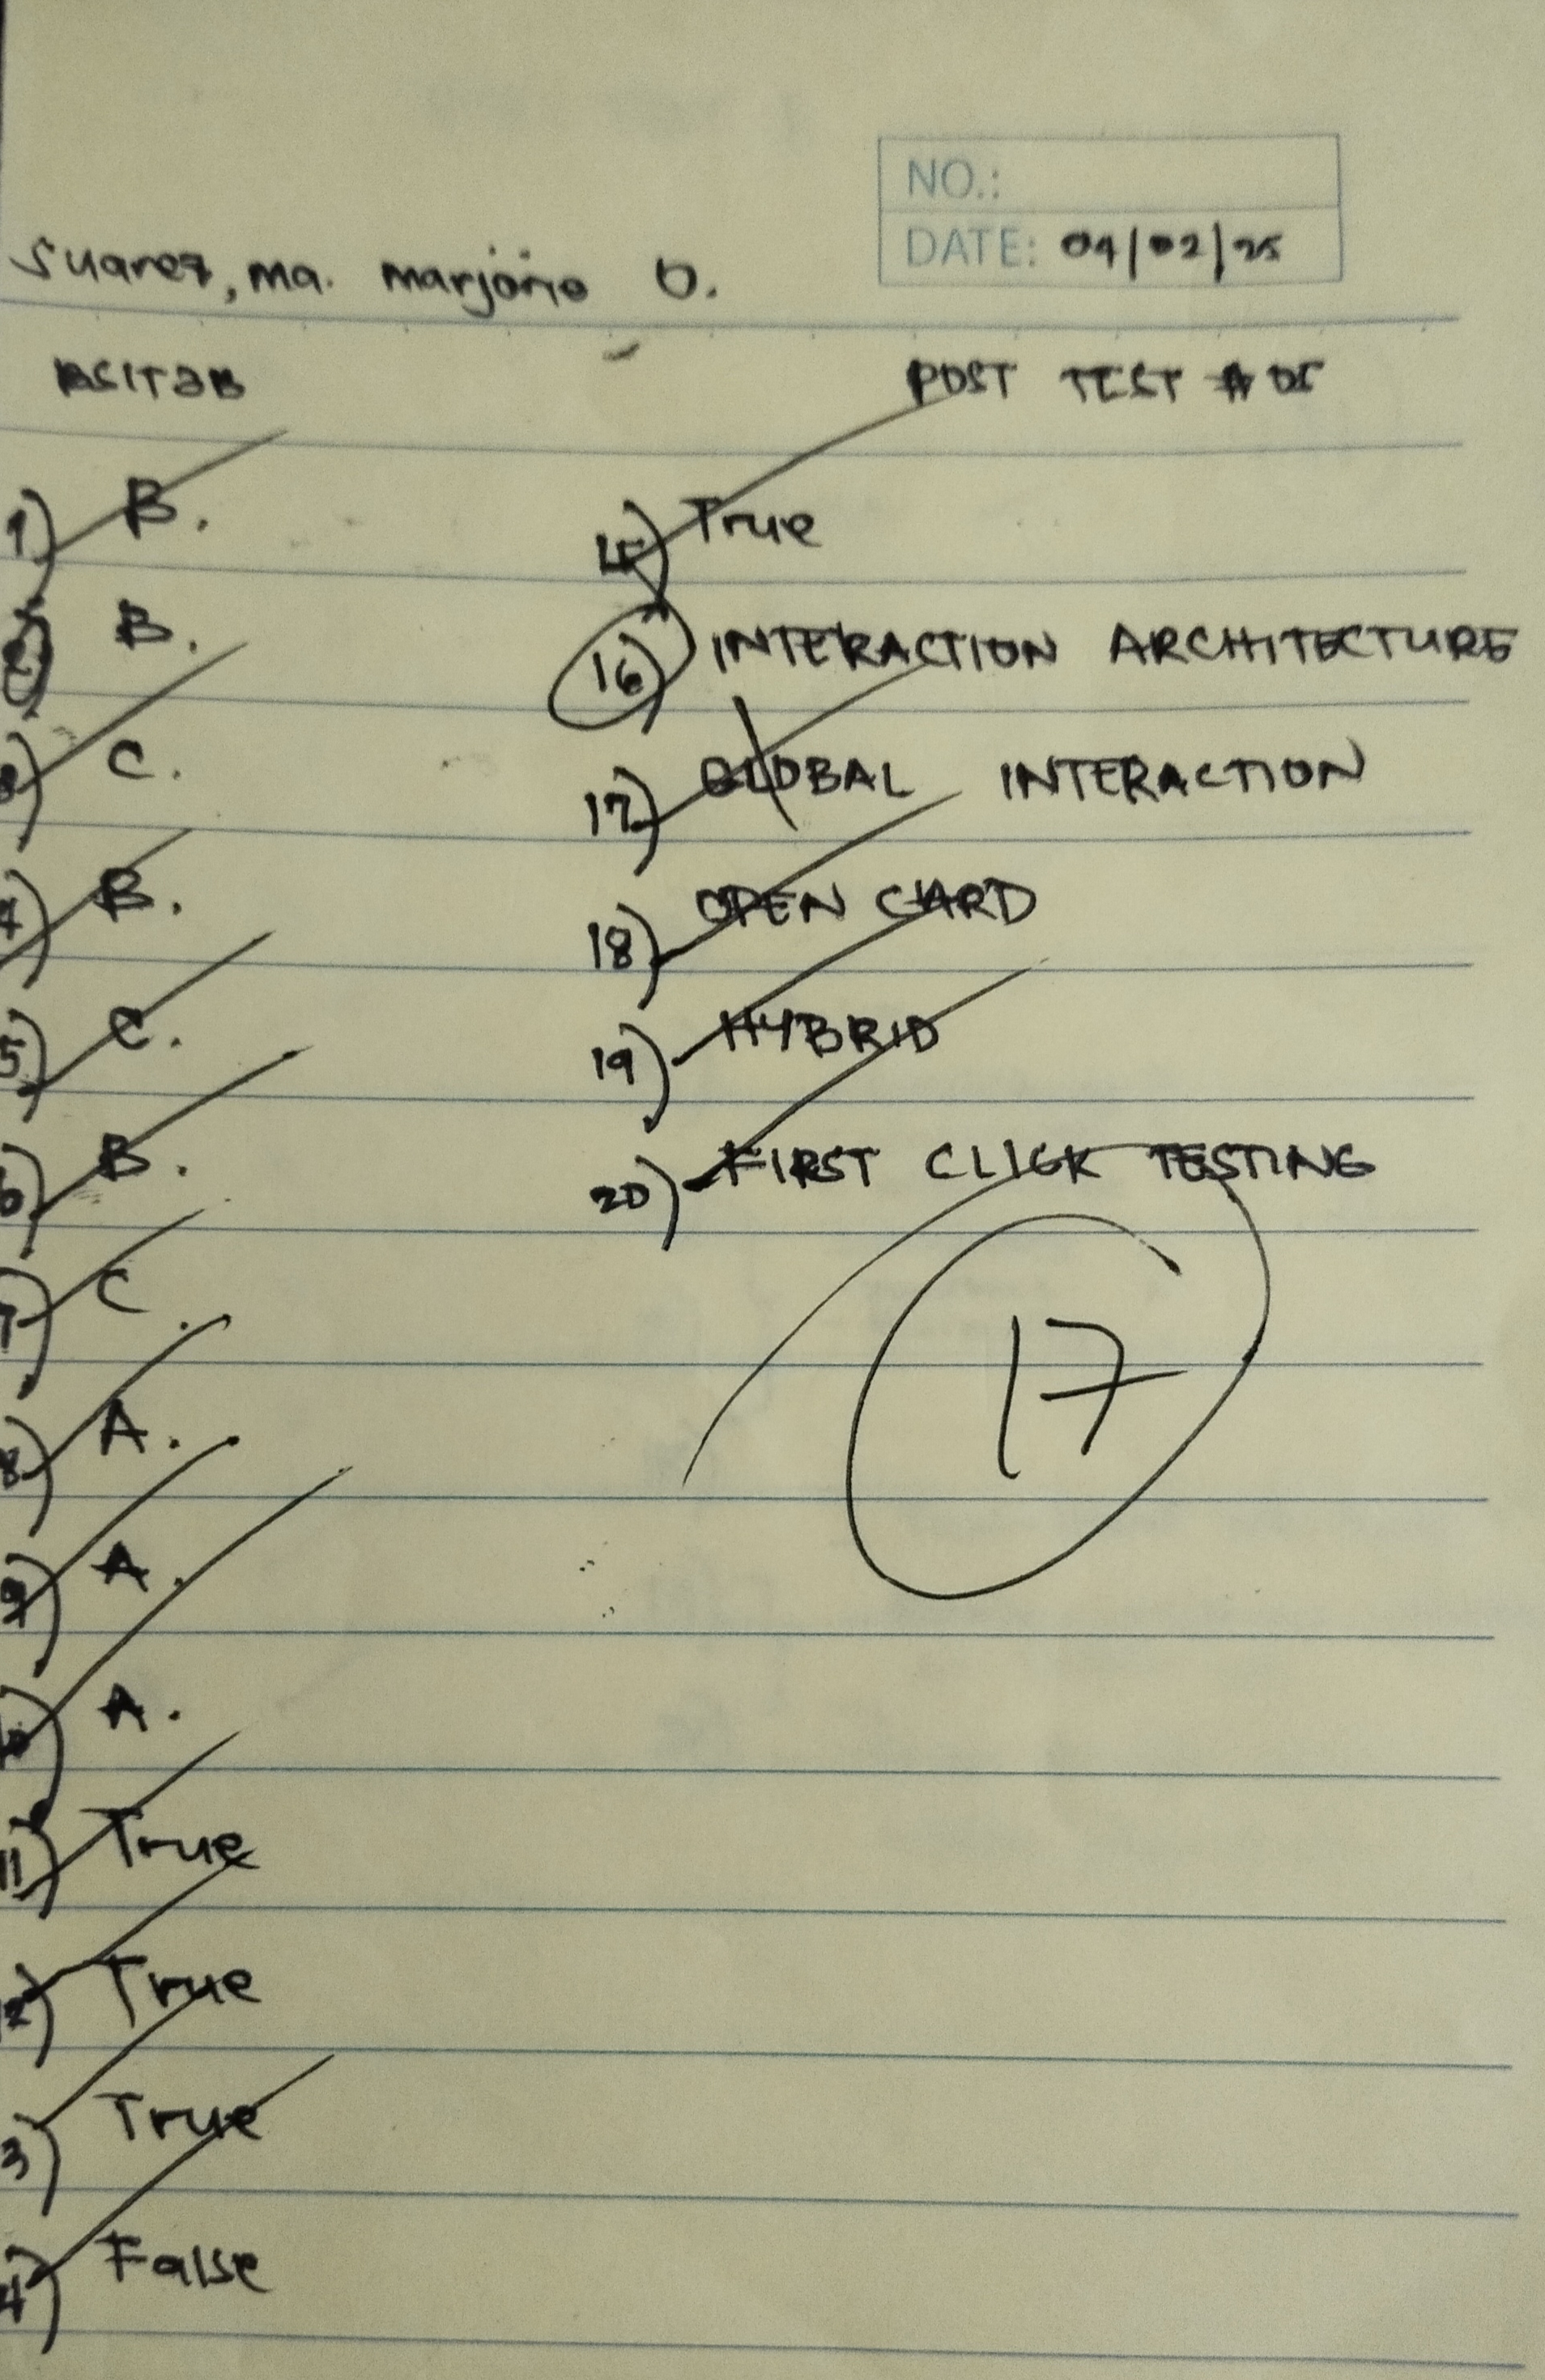 NO.:
DATE: 04/02/25
Suarez, ma. marjorie O.
BSIT3B
POST TEST # 05
1) B.
2) B.
3) C.
4) B.
5) C.
6) B.
7) C.
8) A.
9) A.
10) A.
11) True
12) True
3) True
4) False
15) True
16) INTERACTION ARCHITECTURE
17) GLOBAL INTERACTION
18) OPEN CARD
19) HYBRID
20) FIRST CLICK TESTING
17